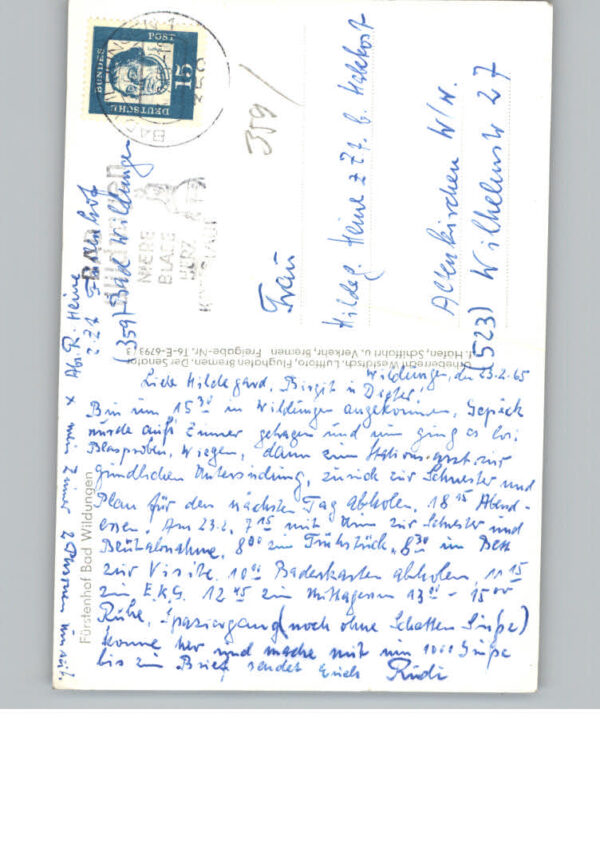 DEUTSCHE BUNDESPOST
15
NIERE
BLASE
HERZ
359/
Abs. R. Heine
z. Zt. Fürstenhof
(359) Bad Wildungen
Frau
Hildeg. Heine z Zt. b.
Altenkirchen W/W.
(523) Wilhelmstr 27
Fürstenhof Bad Wildungen
Urheberrecht Westdtsch. Luftfoto, Flughafen Bremen. Der Senator
f. Häfen, Schiffahrt u. Verkehr, Bremen Freigabe-Nr. T6-E-6793/3
Wildungen, den 23.2.65
Liebe Hildegard, Birgit u Dieter!
Bin um 15³⁰ in Wildungen angekommen, Gepäck
wurde aufs Zimmer getragen und nun ging es los:
Blasproben, Wiegen, dann zum Stationsarzt zur
gründlichen Untersuchung, zurück zur Schwester und
Plan für den nächsten Tag abholen. 18¹⁵ Abend-
essen. Am 23.2. 7¹⁵ mit Urin zur Schwester und
Blutabnahme, 8⁰⁰ zum Frühstück, 8³⁰ im Bett
zur Visite. 10⁰⁰ Badekarten abholen, 11¹⁵
zum E.K.G. 12⁴⁵ zum Mittagessen 13⁰⁰ - 15⁰⁰
Ruhe, Spaziergang (noch ohne Schatten
komme her und mache mit nun 1000
bis zum Brief sendet Euch Rudi
x mein Zimmer 2 Personen